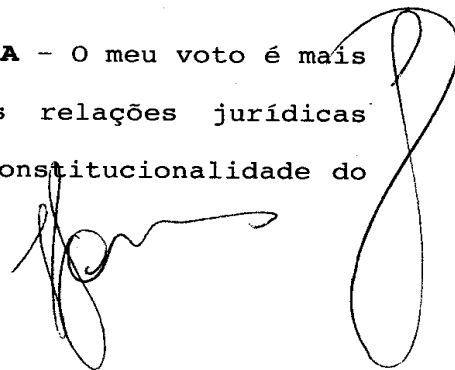 A - O meu voto é mais
s relações jurídicas
onstitucionalidade do